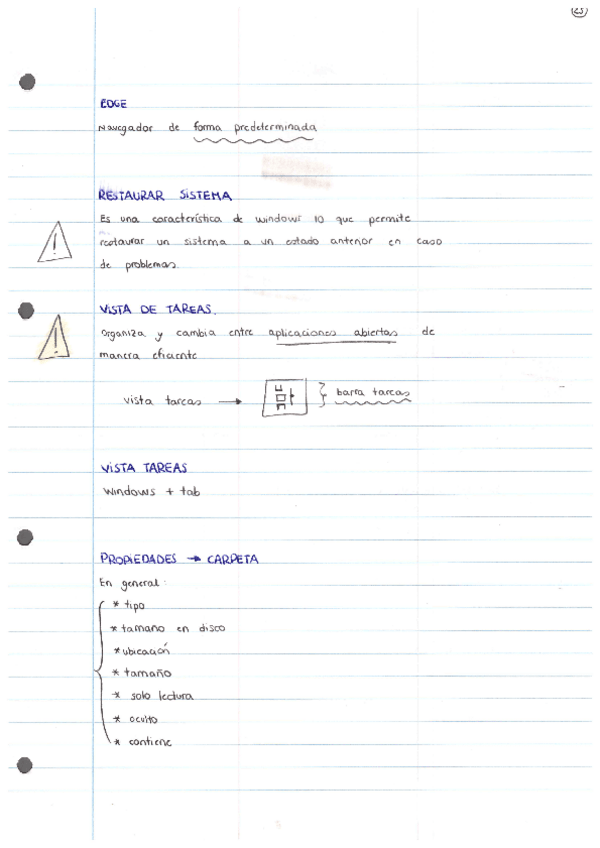 (25)
EDGE
Navegador de forma predeterminada
RESTAURAR SISTEMA
Es una característica de windows 10 que permite
restaurar un sistema a un estado anterior en caso
de problemas.
VISTA DE TAREAS.
organiza y cambia entre aplicaciones abiertas de
manera eficiente
vista tareas → } barra tareas
VISTA TAREAS
Windows + tab
PROPIEDADES → CARPETA
En general:
* tipo
* tamano en disco
* ubicación
* tamaño
* solo lectura
* oculto
* contiene